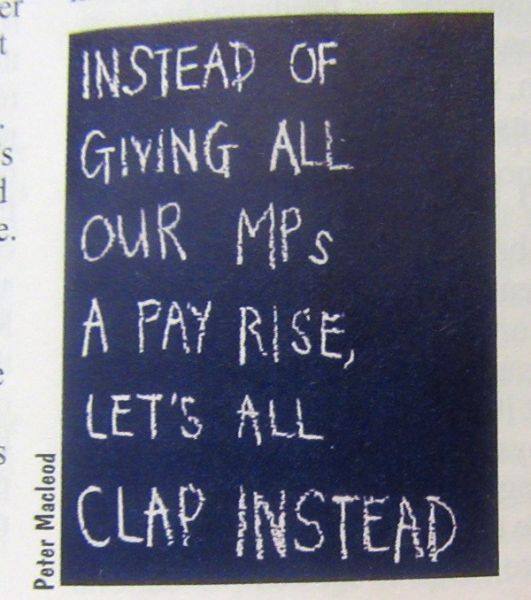 INSTEAD OF
GIVING ALL
OUR MPs
A PAY RISE,
LET'S ALL
CLAP INSTEAD
Peter Macleod